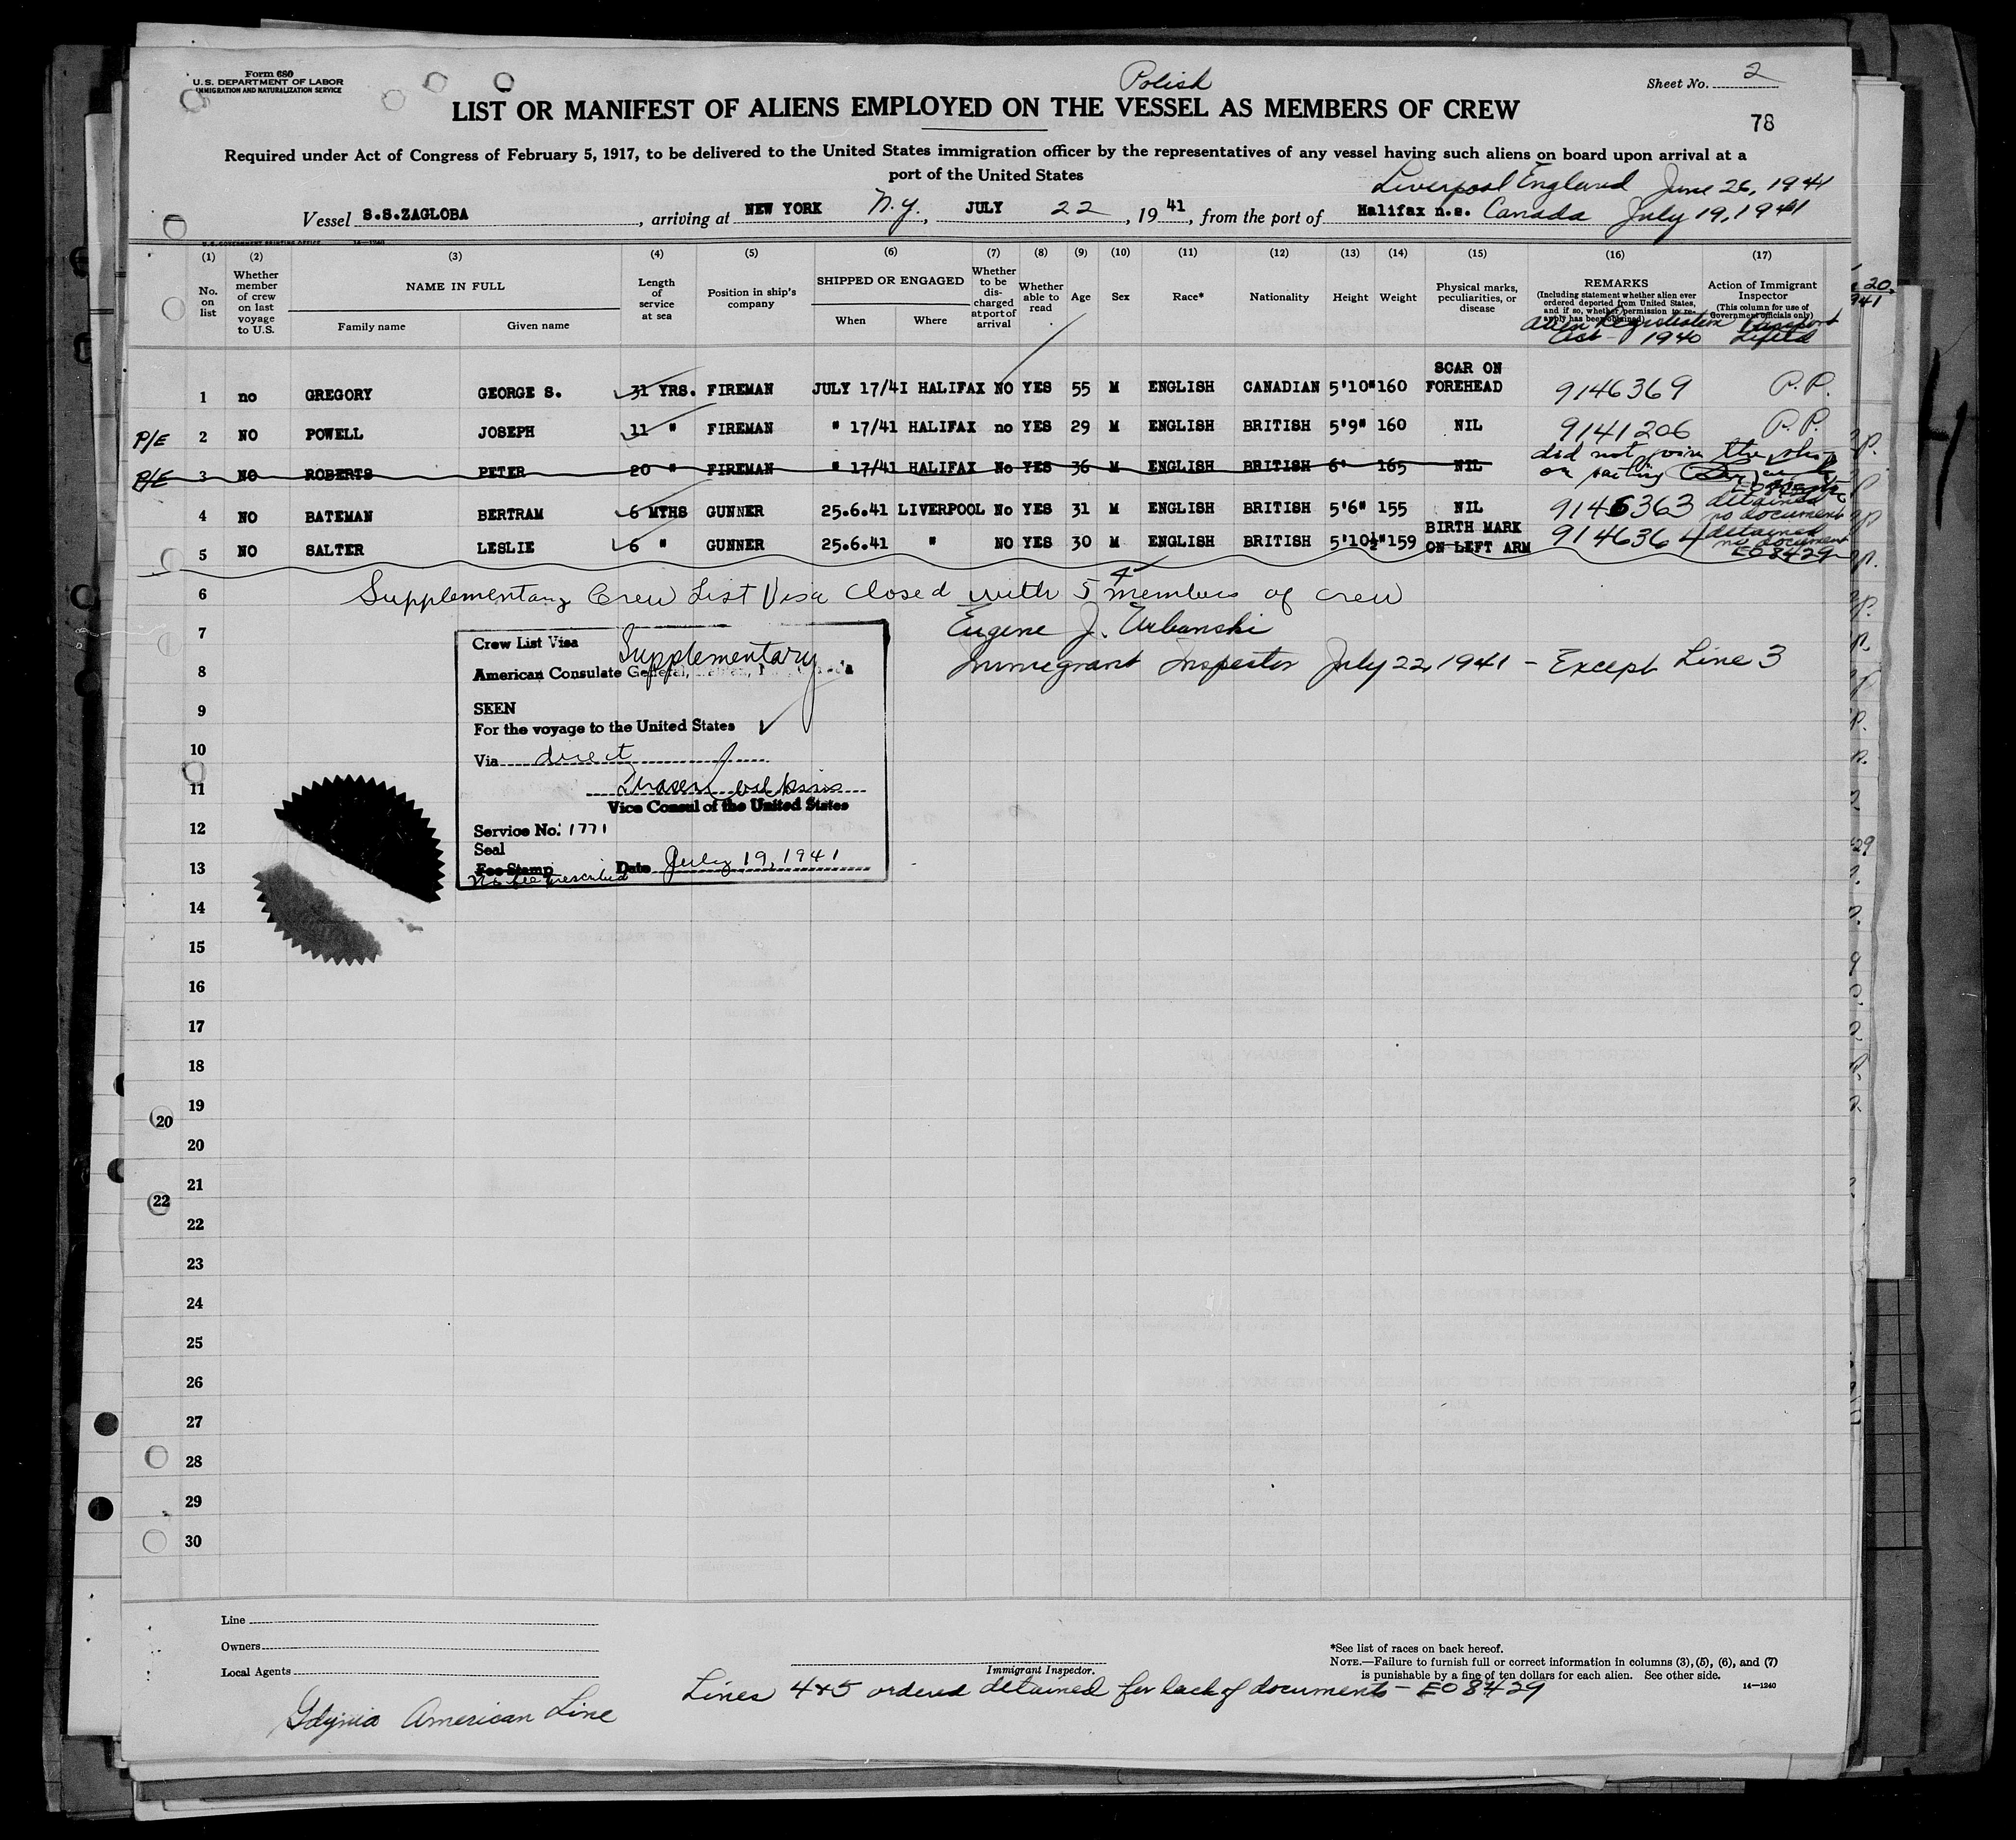 Form 680
U.S. DEPARTMENT OF LABOR
IMMIGRATION AND NATURALIZATION SERVICE
Polish
Sheet No. 2
LIST OR MANIFEST OF ALIENS EMPLOYED ON THE VESSEL AS MEMBERS OF CREW
78
Required under Act of Congress of February 5, 1917, to be delivered to the United States immigration officer by the representatives of any vessel having such aliens on board upon arrival at a
port of the United States
Liverpool England June 26, 1941
Vessel S.S.ZAGLOBA, arriving at NEW YORK N.Y., JULY 22, 1941, from the port of Halifax n.s. Canada July 19, 1941
U.S. GOVERNMENT PRINTING OFFICE 14—1240
(1) (2) (3) (4) (5) (6) (7) (8) (9) (10) (11) (12) (13) (14) (15) (16) (17)
No. on list
Whether member of crew on last voyage to U.S.
NAME IN FULL
Family name
Given name
Length of service at sea
Position in ship's company
SHIPPED OR ENGAGED
When
Where
Whether to be discharged at port of arrival
Whether able to read
Age
Sex
Race*
Nationality
Height
Weight
Physical marks, peculiarities, or disease
REMARKS
(Including statement whether alien ever ordered deported from United States, and if so, whether permission to reapply has been obtained)
Alien Registration
Act - 1940
Action of Immigrant Inspector
(This column for use of Government officials only)
Passport
1 no GREGORY GEORGE S. 31 YRS. FIREMAN JULY 17/41 HALIFAX NO YES 55 M ENGLISH CANADIAN 5'10" 160 SCAR ON FOREHEAD 9146369 P.P.
P/E 2 NO POWELL JOSEPH 11 " FIREMAN " 17/41 HALIFAX no YES 29 M ENGLISH BRITISH 5'9" 160 NIL 9141206 P.P.
P/E 3 NO ROBERTS PETER 20 " FIREMAN " 17/41 HALIFAX No YES 36 M ENGLISH BRITISH 6' 165 NIL did not join the ship on sailing
4 NO BATEMAN BERTRAM 6 MTHS GUNNER 25.6.41 LIVERPOOL No YES 31 M ENGLISH BRITISH 5'6" 155 NIL 9146363 detained no document
5 NO SALTER LESLIE 6 " GUNNER 25.6.41 " NO YES 30 M ENGLISH BRITISH 5'10½" 159 BIRTH MARK ON LEFT ARM 9146364 detained no document EO 8429
6 Supplementary Crew List Visa closed with 5 4 members of crew
7 Eugene J. Urbanski
8 Immigrant Inspector July 22, 1941 - Except Line 3
Crew List Visa
Supplementary
American Consulate General,
SEEN
For the voyage to the United States
Via direct
Vice Consul of the United States
Service No. 1771
Seal
Fee Stamp
No fee prescribed
Date July 19, 1941
9
10
11
12
13
14
15
16
17
18
19
20
21
22
23
24
25
26
27
28
29
30
20
22
Line
Owners
Local Agents
Gdynia American Line
Immigrant Inspector.
Lines 4+5 ordered detained for lack of documents - EO 8429
*See list of races on back hereof.
NOTE.—Failure to furnish full or correct information in columns (3), (5), (6), and (7)
is punishable by a fine of ten dollars for each alien. See other side.
14—1240